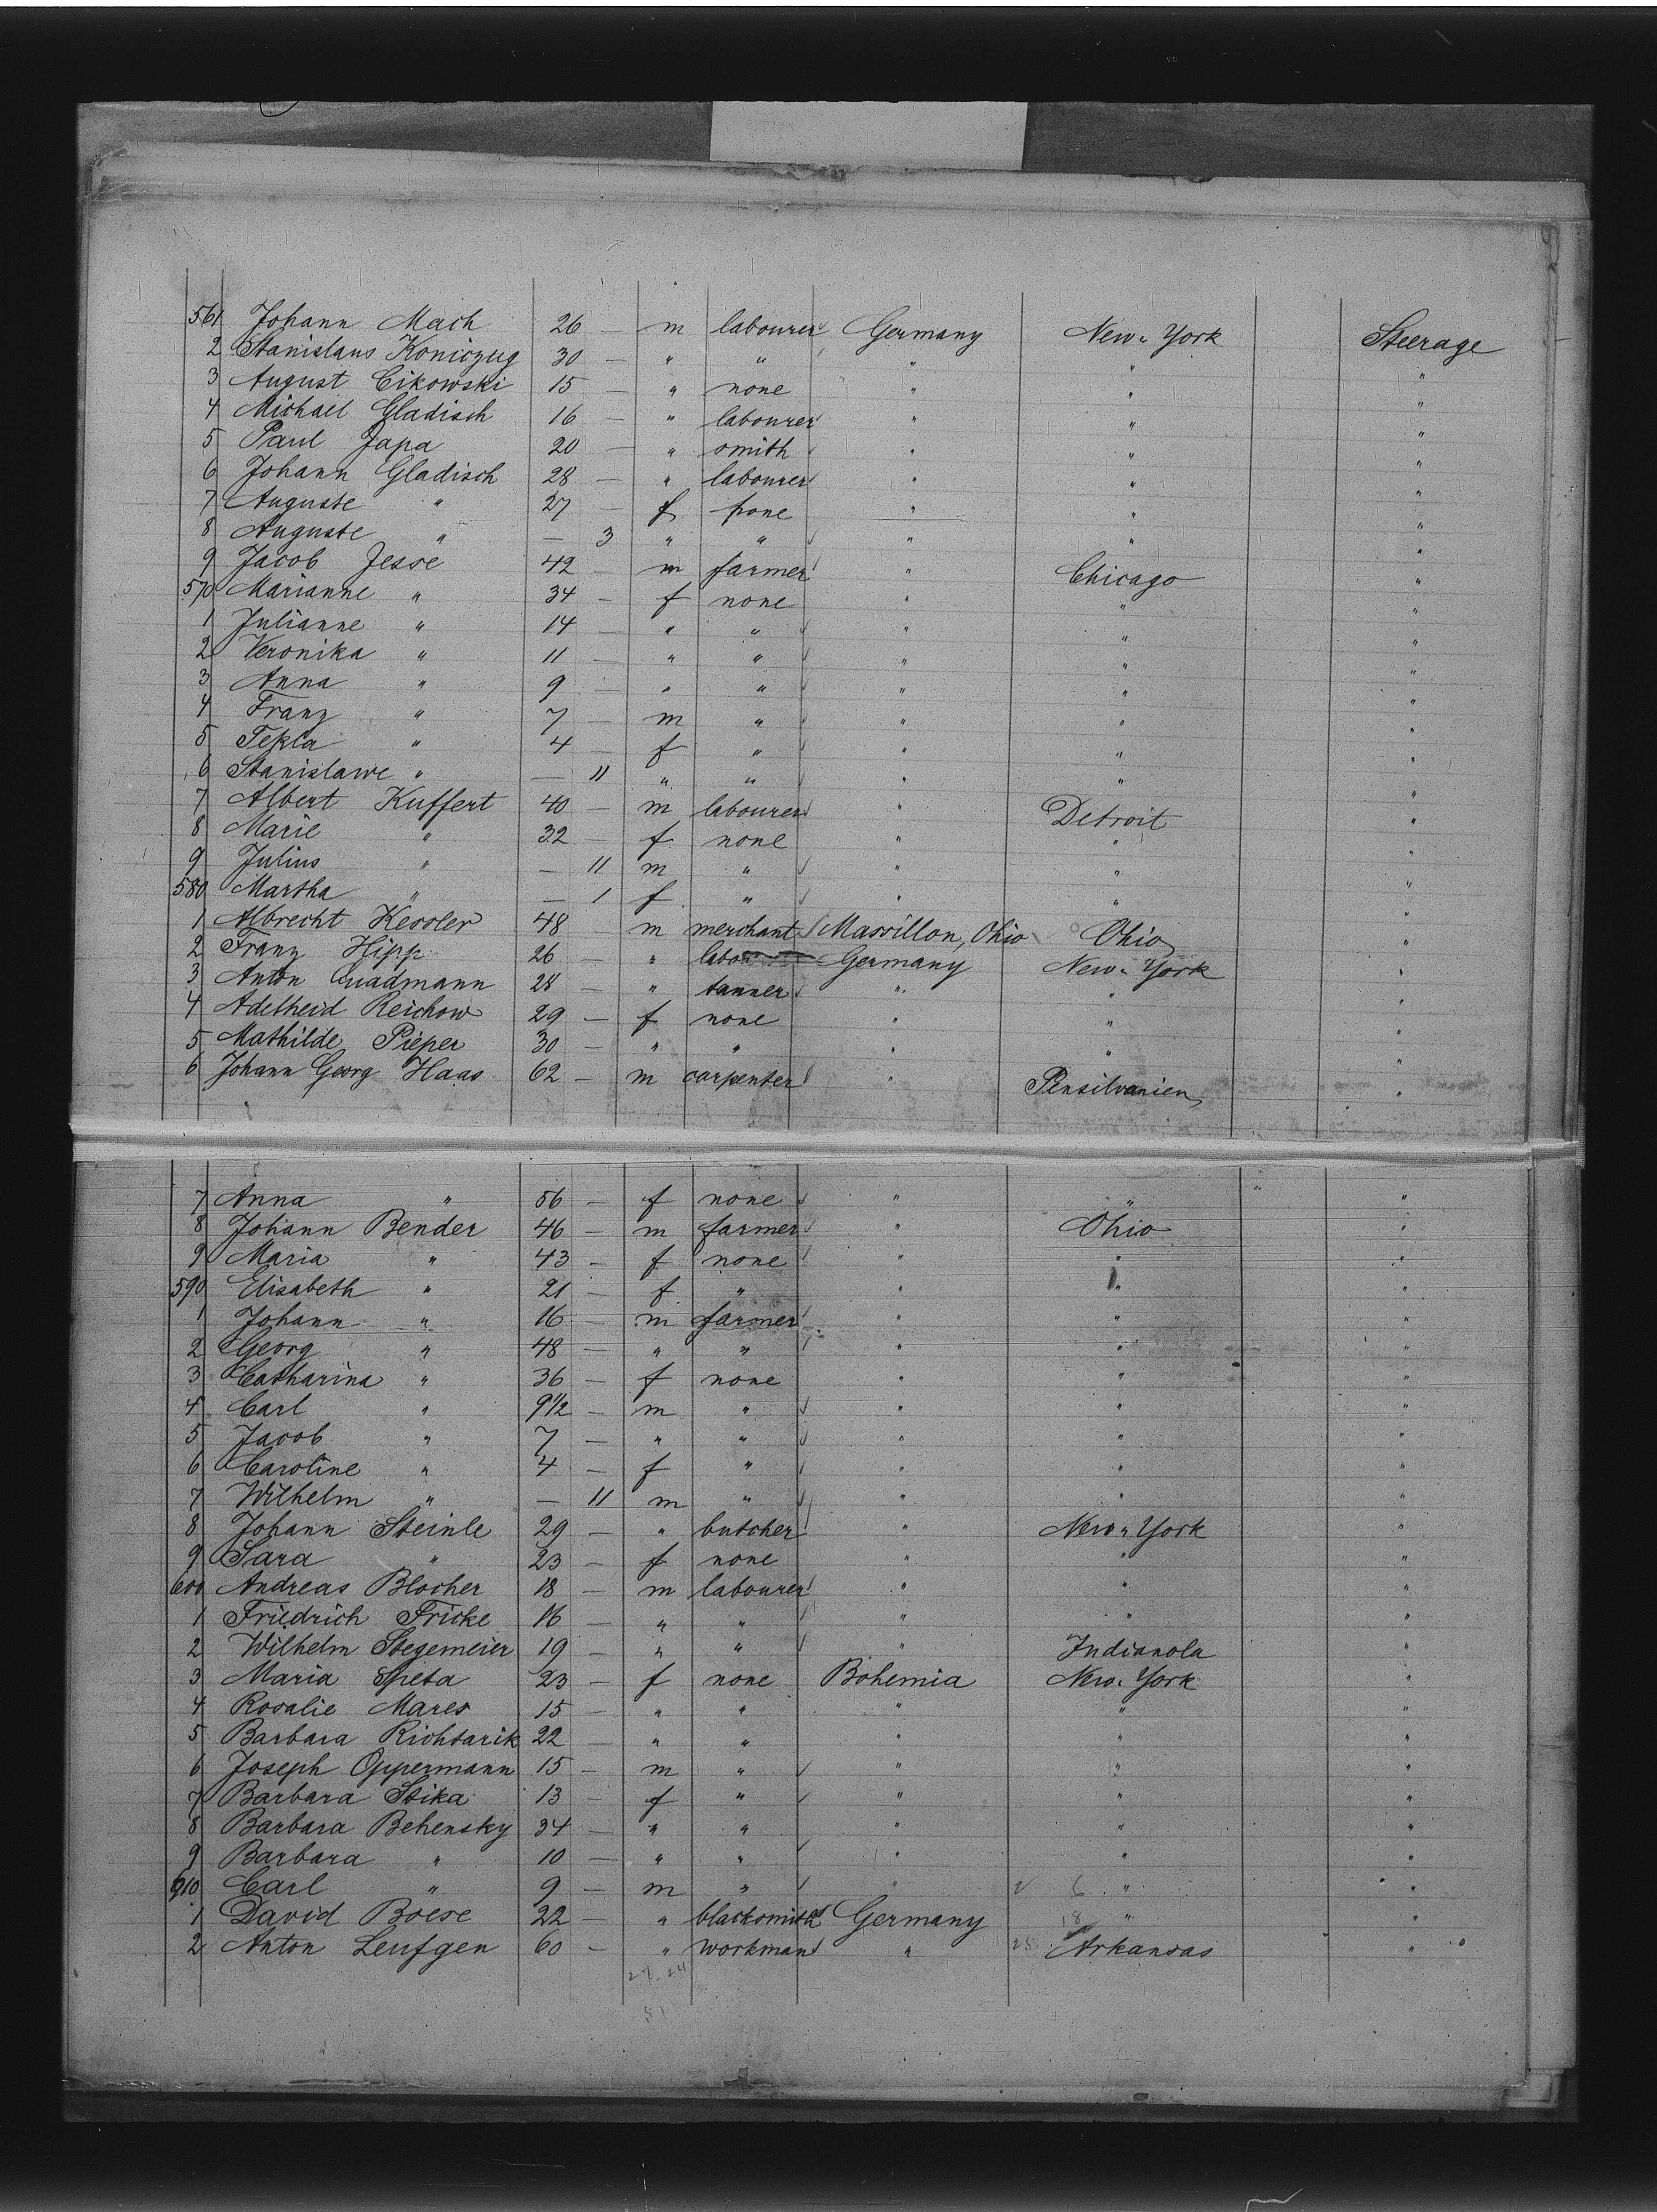 561 Johann Mach 26 — m labourer Germany New-York Steerage
2 Stanislaus Koniczug 30 — " " " " "
3 August Cikowski 15 — " none " " "
4 Michael Gladisch 16 — " labourer " " "
5 Paul Japa 20 — " smith " " "
6 Johann Gladisch 28 — " labourer " " "
7 Auguste " 27 — f none " " "
8 Auguste " — 3 " " " " "
9 Jacob Jesse 42 — m farmer " Chicago "
570 Marianne " 34 — f none " " "
1 Julianne " 14 — " " " " "
2 Veronika " 11 — " " " " "
3 Anna " 9 — " " " " "
4 Franz " 7 — m " " " "
5 Tekla " 4 — f " " " "
6 Stanislawe " — 11 " " " " "
7 Albert Kuffert 40 — m labourer " Detroit "
8 Marie " 32 — f none " " "
9 Julius " — 11 m " " " "
580 Martha " — 1 f " " " "
1 Albrecht Kessler 48 — m merchant Massillon, Ohio Ohio "
2 Franz Hipp 26 — " labo Germany New-York "
3 Anton Quadmann 28 — " tanner " " "
4 Adelheid Reichow 29 — f none " " "
5 Mathilde Pieper 30 — " " " " "
6 Johann Georg Haas 62 — m carpenter " Pensilvanien "
7 Anna " 56 — f none " " " "
8 Johann Bender 46 — m farmer " Ohio "
9 Maria " 43 — f none " " "
590 Elisabeth " 21 — f " " " "
1 Johann " 16 — m farmer " " "
2 Georg " 48 — " " " " "
3 Catharina " 36 — f none " " "
4 Carl " 9 1/2 — m " " " "
5 Jacob " 7 — " " " " "
6 Caroline " 4 — f " " " "
7 Wilhelm " — 11 m " " " "
8 Johann Steinle 29 — " butcher " New-York "
9 Sara " 23 — f none " " "
600 Andreas Blocher 18 — m labourer " " "
1 Friedrich Fricke 16 — " " " " "
2 Wilhelm Stegemeier 19 — " " " Indianola "
3 Maria Speta 23 — f none Bohemia New-York "
4 Rosalie Mares 15 — " " " " "
5 Barbara Richtarik 22 — " " " " "
6 Joseph Oppermann 15 — m " " " "
7 Barbara Stika 13 — f " " " "
8 Barbara Behensky 34 — " " " " "
9 Barbara " 10 — " " " " "
610 Carl " 9 — m " " 6 " "
1 David Boese 22 — " blacksmith Germany 18 " "
2 Anton Leufgen 60 — " workman " Arkansas "
27 24
51